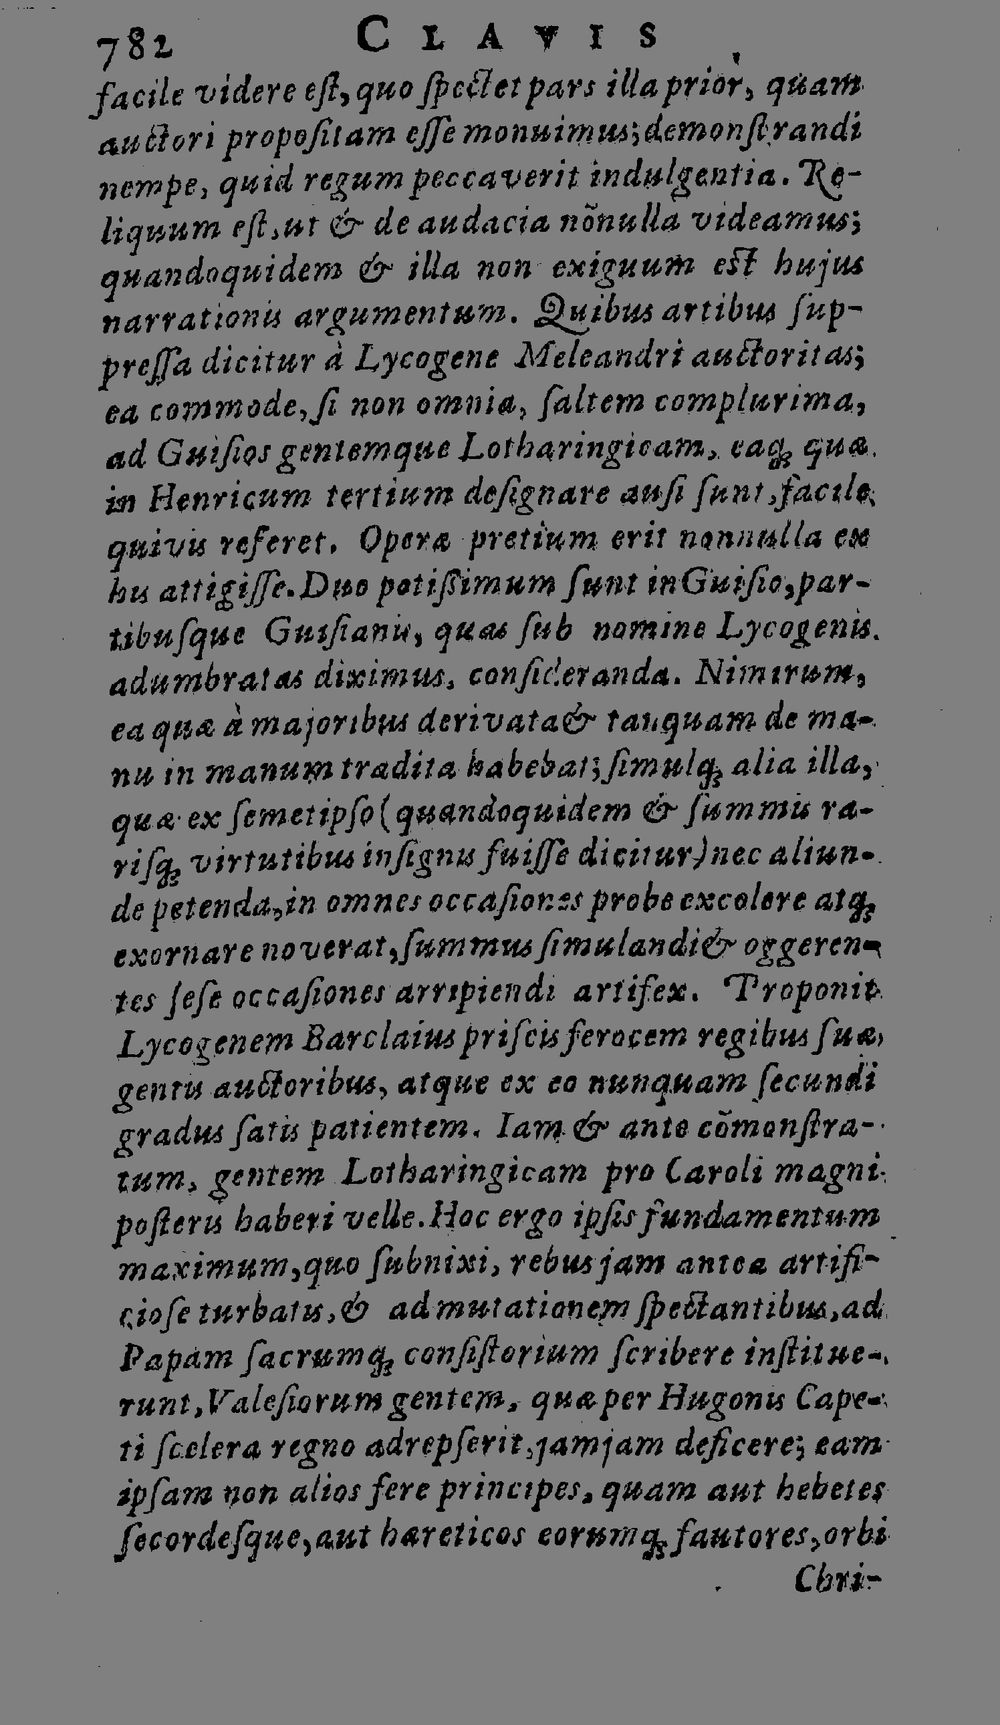 782 CLAVIS
facile videre eſt, quo ſpectet pars illa prior, quam
auctori propoſitam eſſe monuimus; demonſtrandi
nempe, quid regum peccaverit indulgentia. Re-
liquum eſt, ut & de audacia nõnulla videamus;
quandoquidem & illa non exiguum est hujus
narrationis argumentum. Quibus artibus ſup-
preſſa dicitur à Lycogene Meleandri auctoritas;
ea commode, ſi non omnia, ſaltem complurima,
ad Guiſios gentemque Lotharingicam, eaq; quæ
in Henricum tertium deſignare auſi ſunt, facile
quivis referet. Operæ pretium erit nonnulla ex
his attigiſſe. Duo potiſſimum ſunt in Guiſio, par-
tibuſque Guiſianis, quas ſub nomine Lycogenis
adumbratas diximus, conſideranda. Nimirum,
ea quæ à majoribus derivata & tanquam de ma-
nu in manum tradita habebat; ſimulq; alia illa,
quæ ex ſemetipſo (quandoquidem & ſummis ra-
riſq; virtutibus inſignis fuiſſe dicitur) nec aliun-
de petenda, in omnes occaſiones probe excolere atq;
exornare noverat, ſummus ſimulandi & oggeren-
tes ſeſe occaſiones arripiendi artifex. Proponit
Lycogenem Barclaius priſcis ferocem regibus ſuæ
gentis auctoribus, atque ex eo nunquam ſecundi
gradus ſatis patientem. Iam & ante cõmonſtra-
tum, gentem Lotharingicam pro Caroli magni
poſteris haberi velle. Hoc ergo ipſis fundamentum
maximum, quo ſubnixi, rebus jam antea artifi-
cioſe turbatis, & ad mutationem ſpectantibus, ad
Papam ſacrumq; conſiſtorium ſcribere inſtitue-
runt, Valeſiorum gentem, quæ per Hugonis Cape-
ti ſcelera regno adrepſerit, jamjam deficere; eam
ipſam non alios fere principes, quam aut hebetes
ſecordeſque, aut hæreticos eorumq; fautores, orbi
Chri-